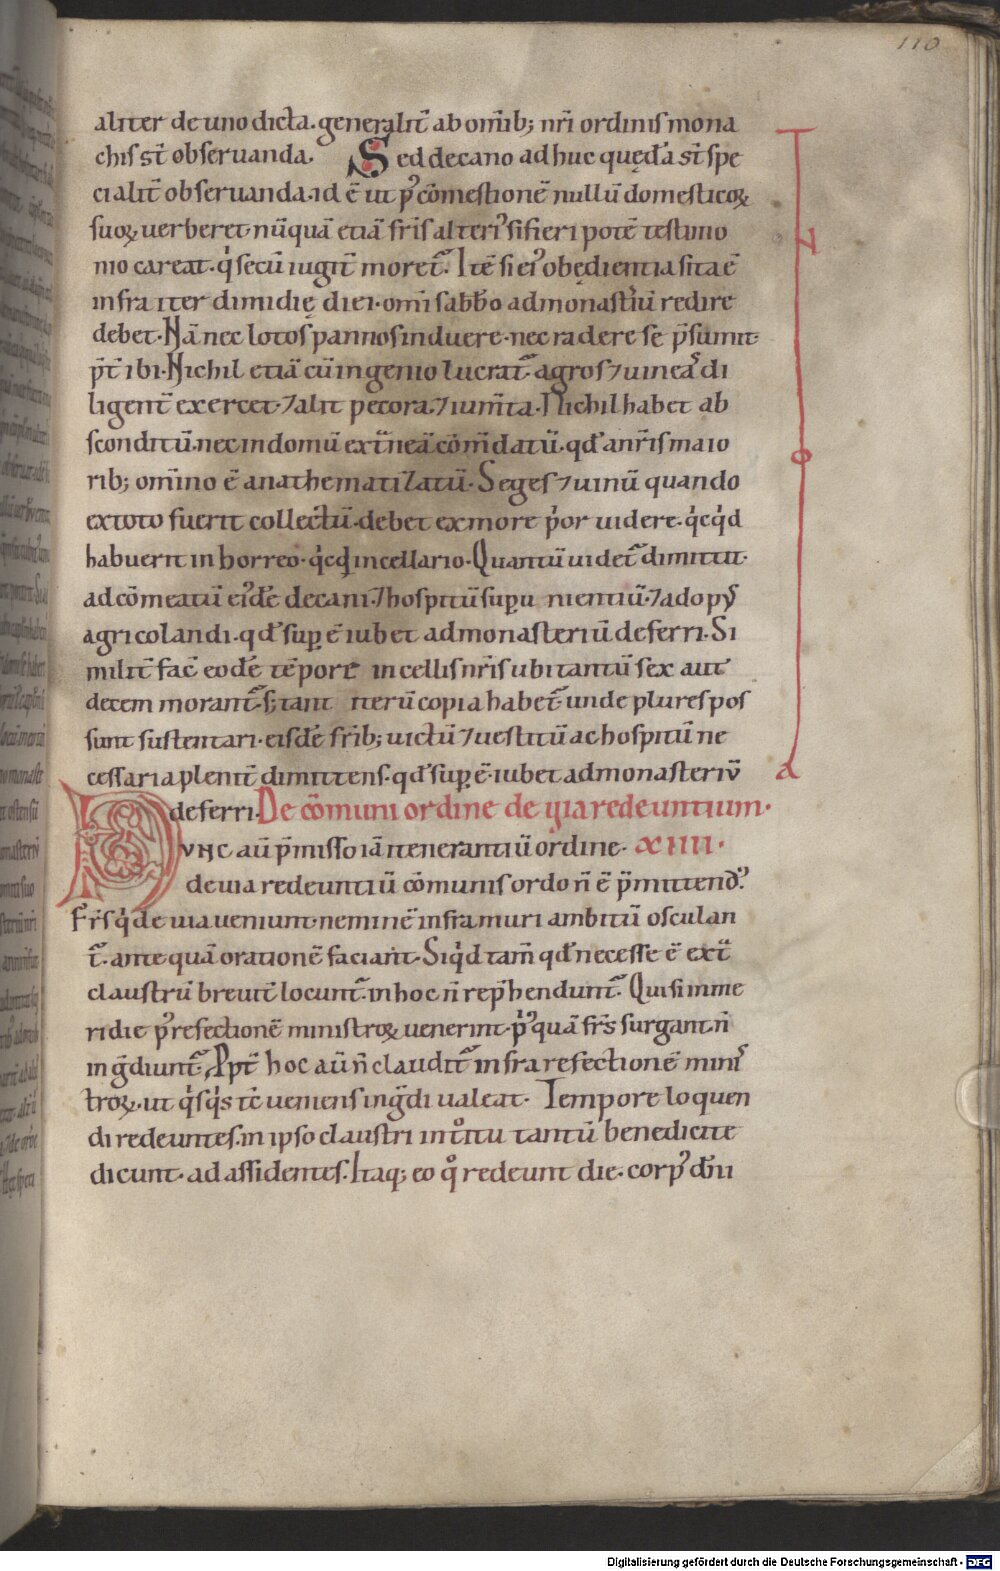 110
aliter de uno dicta. generalit̄ ab om̄ib; nr̄i ordinis mona
chis st̄ obseruanda. Sed decano ad huc quędā st̄ spe
cialit̄ obseruanda. id ē ut p᷒ cōmestionē nullū domesticoꝝ
suoꝝ uerberet. nūquā etiā fr̄is alteri᷒ si fieri potē testimo
nio careat. qͥ secū iugit̄ moret᷑. Itē si ei᷒ obędientia sita ē
infra iter dimidię diei. om̄i sabb̄o ad monast̄iū redire
debet. Nā nec lotos pannos induere. nec radere se p̄sumit.
p̄t̄ ibi. Nichil etiā cū ingenio lucrat᷑. agros ⁊ uineas di
ligent̄ exercet. ⁊ alit pecora. ⁊ ium̄ta. Nichil habet ab
sconditū. nec in domū ext̄neā cōm̄datū. qd̄ a nr̄is maio
rib; om̄ino ē anathematizatū. Seges ⁊ uinū quando
ex toto fuerit collectū. debet ex more p̄or uidere. qͥcqͥd
habuerit in horreo. qͥcqd̄ in cellario. Quantū uidet᷑ dimittit.
ad cōmeatū ei᷒dē decani. ⁊ hospitū supu nientiū. ⁊ ad op᷒
agricolandi. qd̄ sup̄ ē iubet ad monasteriū deferri. Si
milit̄ fac̄ eodē tēpore in cellis nr̄is ubi tantū sex aut
decem morant᷑. s; tant nerū copia habet᷑. unde plures pos
sunt sustentari. eisdē fr̄ib; uictū ⁊ uestitū ac hospitū ne
cessaria plenit̄ dimittens. qd̄ sup̄ ē. iubet ad monasteriū
deferri. De cōmuni ordine de uia redeuntium.
Nunc aū p̄misso iā itenerantiū ordine. XIIII.
de uia redeuntiū cōmunis ordo n̄ ē p̄mittend᷒.
Fr̄s qͥ de uia ueniunt. neminē infra muri ambitū osculan
t᷑. ante quā orationē faciant. Siqͥd tam̄ qd̄ necesse ē ext̄
claustrū breuit̄ locunt᷑. in hoc n̄ rep̄hendunt᷑. Qui si in me
ridie p᷒ refectionē ministroꝝ uenerint. p᷒quā fr̄s surgant. n̄
ingͣdiunt᷑. Ppt̄ hoc aū n̄ claudit᷑ infra refectionē minis
troꝝ. ut qͥsqͥs tc̄ ueniens ingͣdi ualeat. Tempore loquen
di redeuntes. in ipso claustri intͦitu tantū benedicite
dicunt. ad assidentes. Itaq; eo qͦ redeunt die. corp᷒ dn̄i